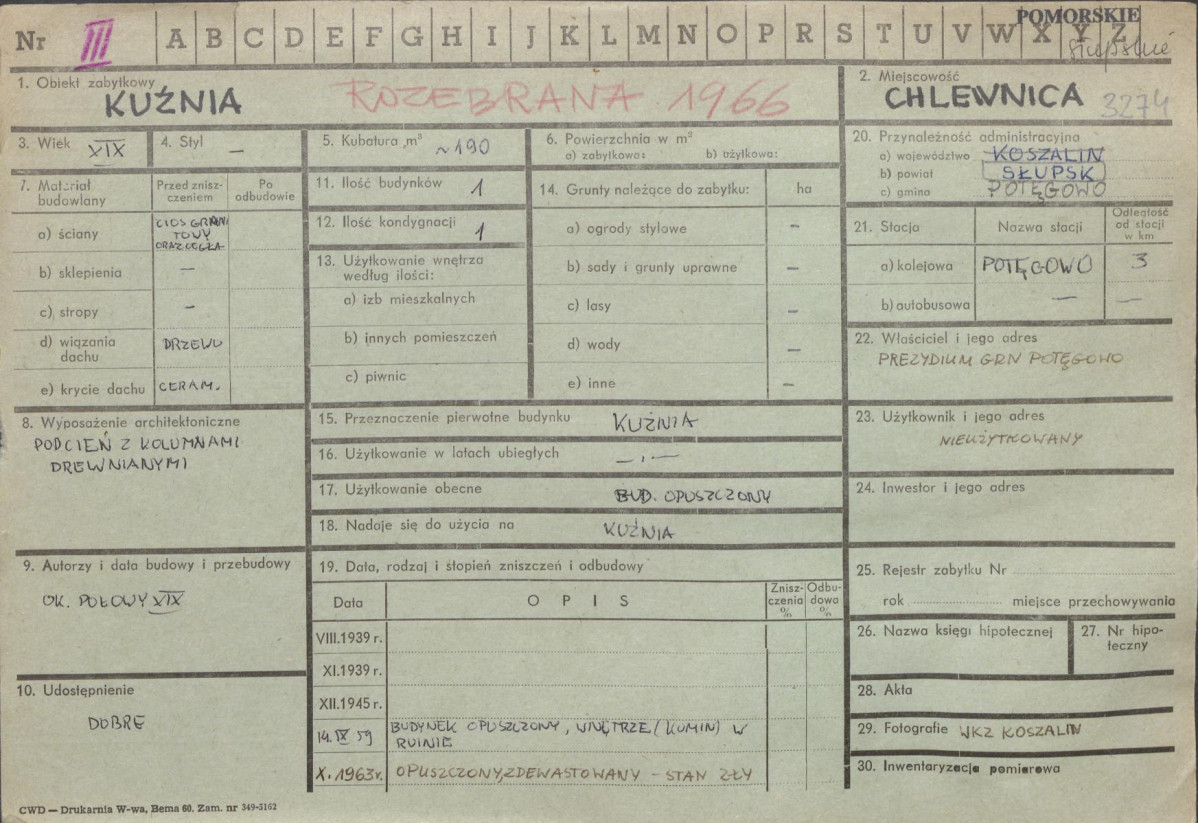 Nr III A B C D E F G H I J K L M N O P R S T U V W X Y Z
POMORSKIE
słupskie
1. Obiekt zabytkowy
KUŹNIA
ROZEBRANA 1966
2. Miejscowość
CHLEWNICA 3274
3. Wiek XIX
4. Styl —
5. Kubatura m³ ~190
6. Powierzchnia w m²
a) zabytkowa: b) użytkowa:
7. Materiał budowlany
Przed zniszczeniem
Po odbudowie
a) ściany
CIOS GRANI
TOWY
ORAZ CEGŁA
b) sklepienia —
c) stropy -
d) wiązania dachu DRZEWO
e) krycie dachu CERAM.
8. Wyposażenie architektoniczne
PODCIEŃ Z KOLUMNAMI
DREWNIANYMI
9. Autorzy i data budowy i przebudowy
OK. POŁOWY XIX
10. Udostępnienie
DOBRE
11. Ilość budynków 1
12. Ilość kondygnacji 1
13. Użytkowanie wnętrza
według ilości:
a) izb mieszkalnych
b) innych pomieszczeń
c) piwnic
14. Grunty należące do zabytku: ha
a) ogrody stylowe —
b) sady i grunty uprawne —
c) lasy —
d) wody —
e) inne —
15. Przeznaczenie pierwotne budynku KUŹNIA
16. Użytkowanie w latach ubiegłych —„—
17. Użytkowanie obecne BUD. OPUSZCZONY
18. Nadaje się do użycia na KUŹNIA
19. Data, rodzaj i stopień zniszczeń i odbudowy
Data
OPIS
Zniszczenia %
Odbudowa %
VIII.1939 r.
XI.1939 r.
XII.1945 r.
14.IX 59 BUDYNEK OPUSZCZONY, WNĘTRZE (KOMIN) W
RUINIE
X. 1963 r. OPUSZCZONY, ZDEWASTOWANY - STAN ZŁY
20. Przynależność administracyjna
a) województwo KOSZALIN
b) powiat SŁUPSK
c) gmina POTĘGOWO
21. Stacja
Nazwa stacji
Odległość od stacji w km
a) kolejowa POTĘGOWO 3
b) autobusowa — —
22. Właściciel i jego adres
PREZYDIUM GRN POTĘGOWO
23. Użytkownik i jego adres
NIEUŻYTKOWANY
24. Inwestor i jego adres
25. Rejestr zabytku Nr
rok miejsce przechowywania
26. Nazwa księgi hipotecznej
27. Nr hipoteczny
28. Akta
29. Fotografie WKZ KOSZALIN
30. Inwentaryzacja pomiarowa
CWD — Drukarnia W-wa, Bema 60. Zam. nr 349-3162